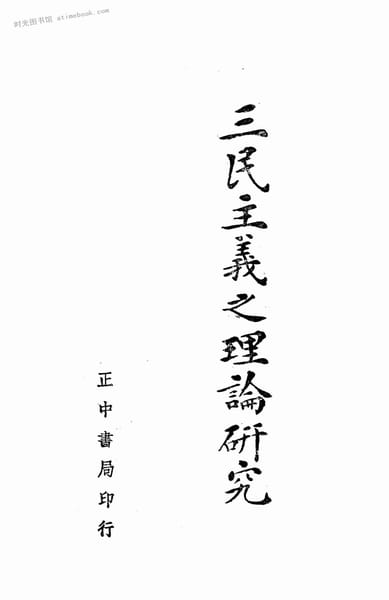 时光图书馆 atimebook.com
三民主義之理論研究
正中書局印行